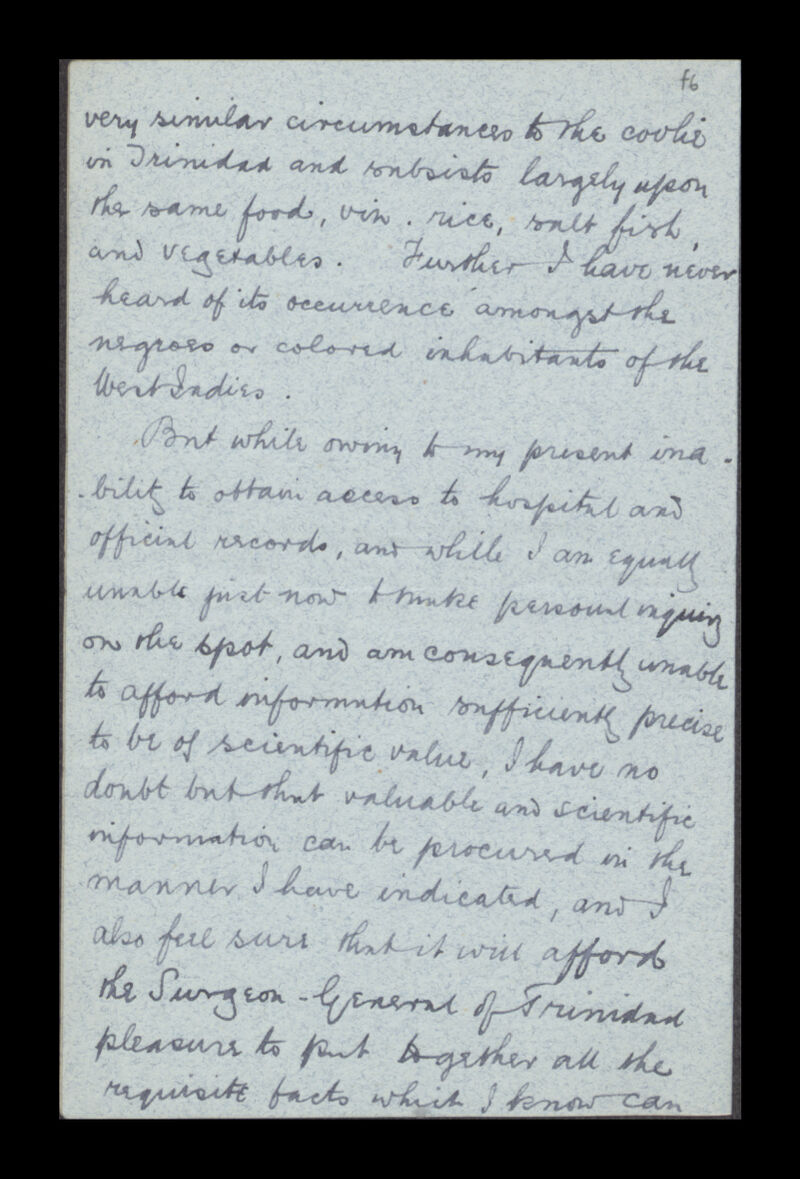 f6
very similar circumstances to the coolie
in Trinidad and subsists largely upon
the same food, viz. rice, salt fish,
and vegetables. Further I have never
heard of its occurrence amongst the
negroes or colored inhabitants of the
West Indies.
But while owing to my present ina-
-bility to obtain access to hospital and
official records, and while I am equally
unable just now to make personal inquiry
on the spot, and am consequently unable
to afford information sufficiently precise
to be of scientific value, I have no
doubt but that valuable and scientific
information can be procured in the
manner I have indicated, and I
also feel sure that it will afford
the Surgeon-General of Trinidad
pleasure to put together all the
requisite facts which I know can